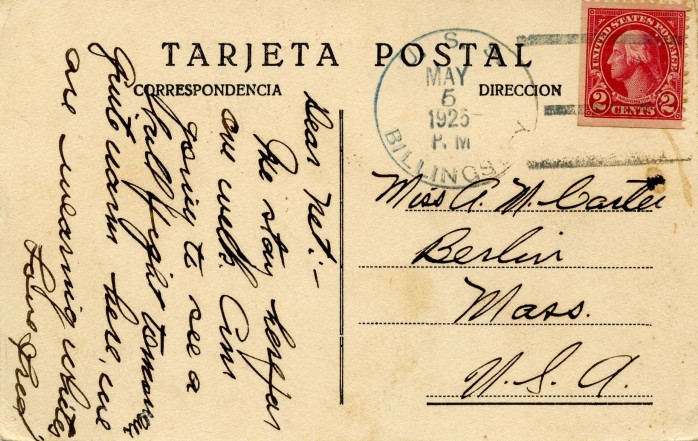 TARJETA POSTAL
CORRESPONDENCIA
DIRECCION
U.S.S.
MAY
5
1925
P.M
BILLINGSLEY
UNITED STATES POSTAGE
2 CENTS 2
Dear Net:-
We stay here for
one week. Am
going to see a
bull fight tomorrow
Quite warm here, we
are wearing whites
Love Fred
Miss A. M. Carter
Berlin
Mass.
U.S.A.